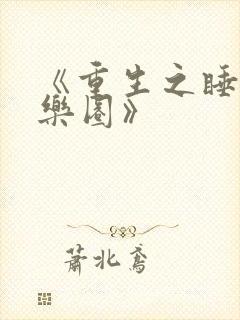 《重生之睡
樂園》
蕭北鳶